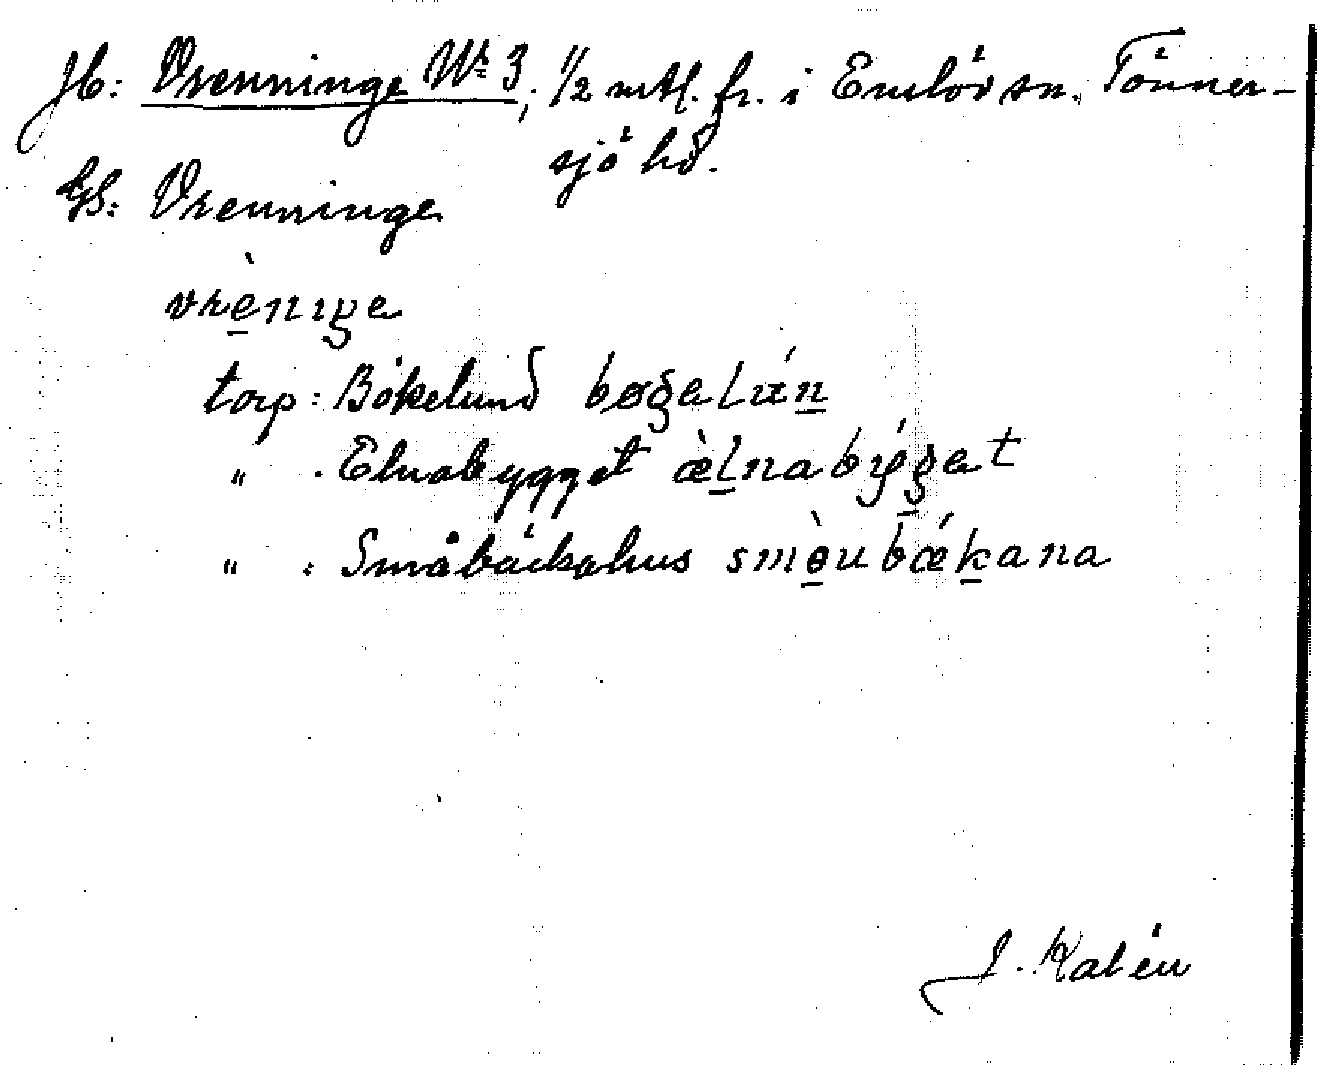 Jb: Vrenninge No 3; 1/2 mtl. fr. i Enslöv sn. Tönner-
sjö hd.
GS: Vrenninge
vrènıŋe
torp: Bökelund bøgelún
" : Elnabygget æ̀lnabýget
" : Småbäckahus smòubǽkana
J. Kalén